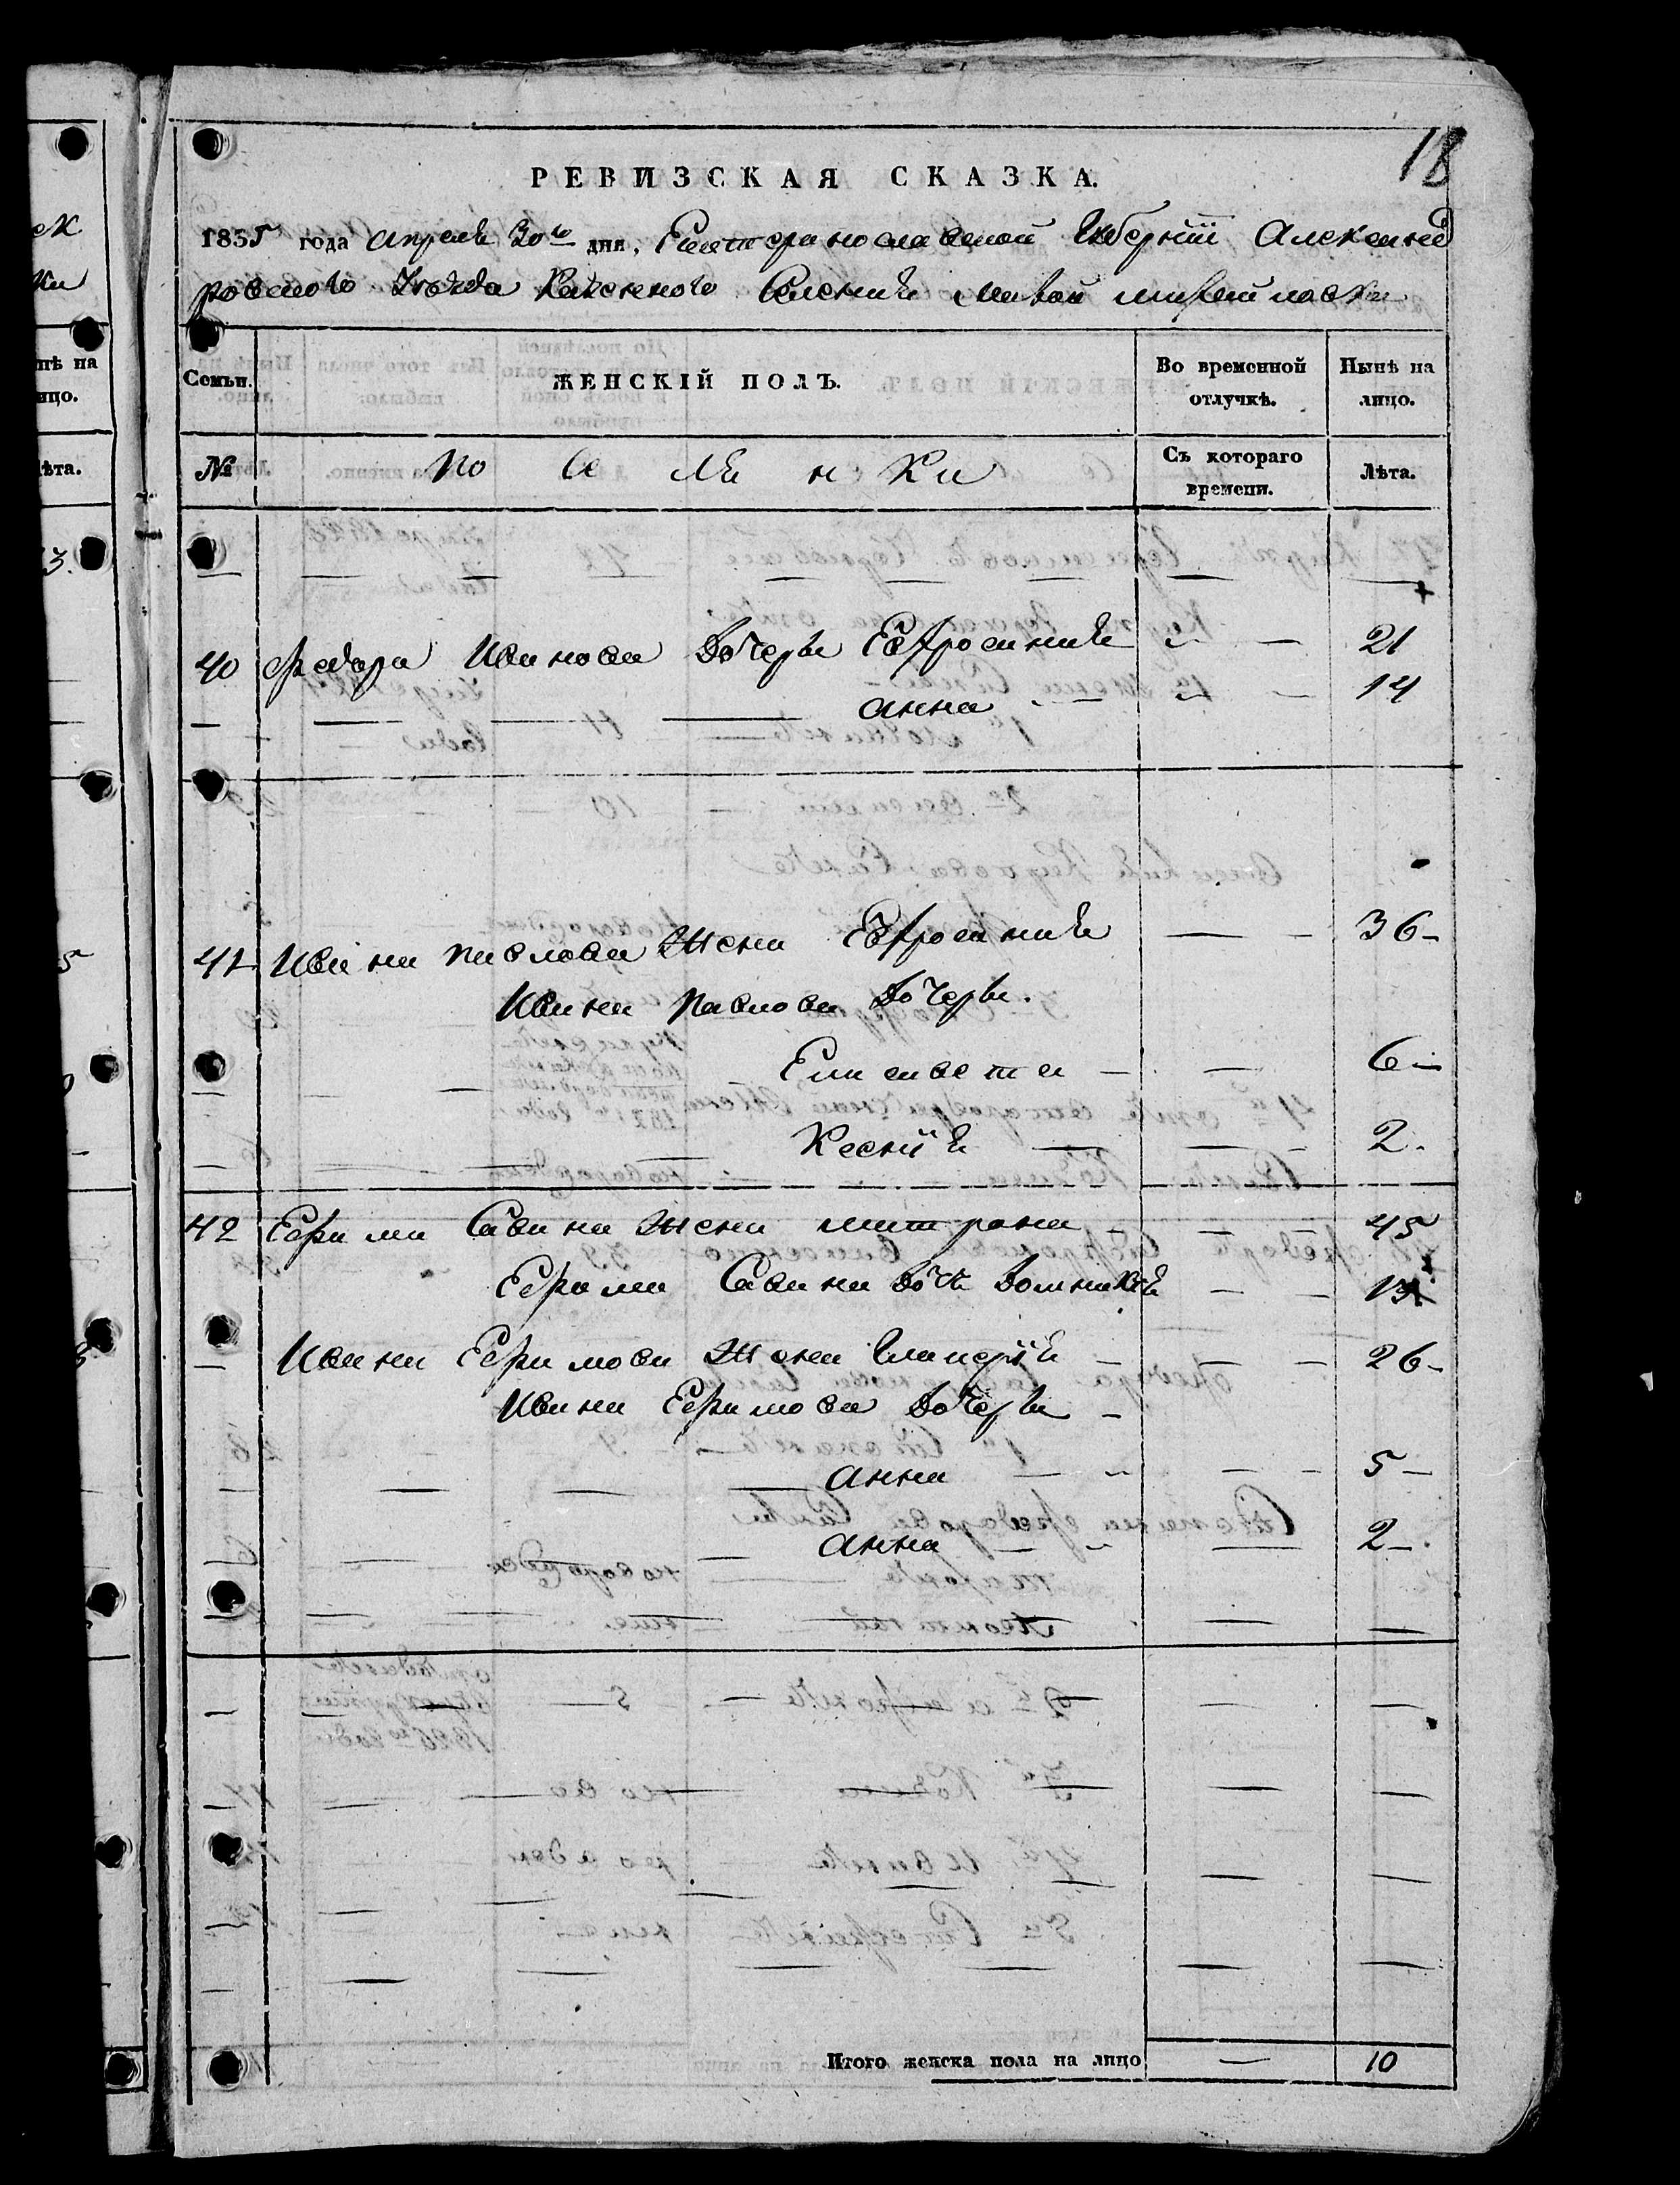 18
РЕВИЗСКАЯ СКАЗКА.
1835 года апреля 30го дня, Екатеринославской Губернiи Александ
ровского Уезда Казенного Селения
Семьи. ЖЕНСКІЙ ПОЛЪ. Во временной отлучкѣ. Нынѣ на лицо.
№ Поселянки Съ котораго времени. Лѣта.
40 Федора Иванова дочери Евфросиния 21
анна 14
41 Ивана Павлова Жена Евфросиния 36
Ивана Павлова дочери.
Елисавета 6
Ксения 2
42 Ефима Савина Жена митрона 45
Ефима Савина дочь домникiя
Ивана Ефимова Жена гликерiя 26
Ивана Ефимова дочери
анна 5
анна 2
Итого женска пола на лицо 10
нѣ на
ицо.
ѣта.
3.